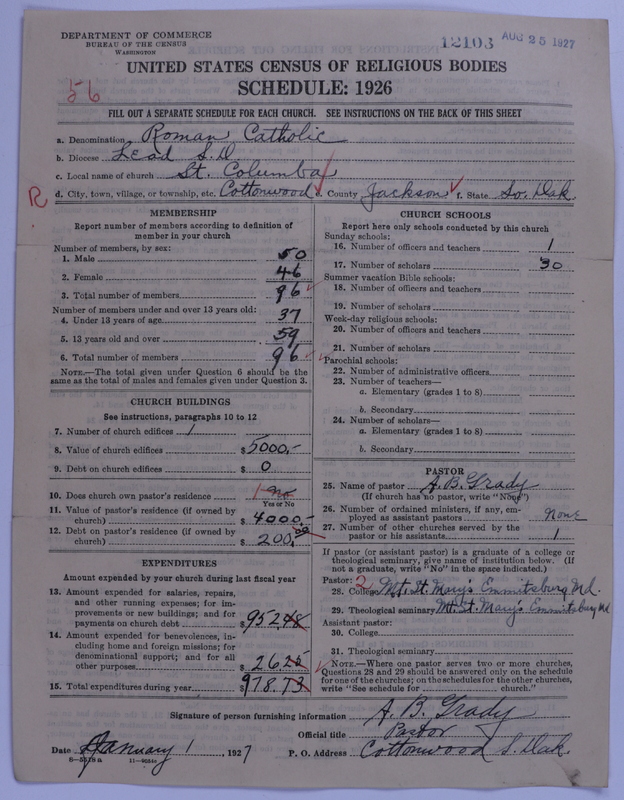 DEPARTMENT OF COMMERCE
BUREAU OF THE CENSUS
WASHINGTON
12103 AUG 25 1927
UNITED STATES CENSUS OF RELIGIOUS BODIES
56
SCHEDULE: 1926
FILL OUT A SEPARATE SCHEDULE FOR EACH CHURCH. SEE INSTRUCTIONS ON THE BACK OF THIS SHEET
a. Denomination Roman Catholic
b. Diocese Lead S.D
c. Local name of church St. Columba
R d. City, town, village, or township, etc. Cottonwood e. County Jackson f. State So. Dak.
MEMBERSHIP
Report number of members according to definition of
member in your church
Number of members, by sex:
1. Male 50
2. Female 46
3. Total number of members 96
Number of members under and over 13 years old:
4. Under 13 years of age 37
5. 13 years old and over 59
6. Total number of members 96
NOTE.—The total given under Question 6 should be the
same as the total of males and females given under Question 3.
CHURCH BUILDINGS
See instructions, paragraphs 10 to 12
7. Number of church edifices 1
8. Value of church edifices $5000.-
9. Debt on church edifices $ 0
10. Does church own pastor's residence 1 no
Yes or No
11. Value of pastor's residence (if owned by
church) $4000.-
12. Debt on pastor's residence (if owned by
church) $200.00
EXPENDITURES
Amount expended by your church during last fiscal year
13. Amount expended for salaries, repairs,
and other running expenses; for im-
provements or new buildings; and for
payments on church debt $95248
14. Amount expended for benevolences, in-
cluding home and foreign missions; for
denominational support; and for all
other purposes $2625
15. Total expenditures during year $978.73
CHURCH SCHOOLS
Report here only schools conducted by this church
Sunday schools:
16. Number of officers and teachers 1
17. Number of scholars 30
Summer vacation Bible schools:
18. Number of officers and teachers
19. Number of scholars
Week-day religious schools:
20. Number of officers and teachers
21. Number of scholars
Parochial schools:
22. Number of administrative officers
23. Number of teachers—
a. Elementary (grades 1 to 8)
b. Secondary
24. Number of scholars—
a. Elementary (grades 1 to 8)
b. Secondary
PASTOR
25. Name of pastor A. B. Grady
(If church has no pastor, write "None")
26. Number of ordained ministers, if any, em-
ployed as assistant pastors None
27. Number of other churches served by the
pastor or his assistants 1
If pastor (or assistant pastor) is a graduate of a college or
theological seminary, give name of institution below. (If
not a graduate, write "No" in the space indicated.)
Pastor: 2
28. College Mt. St. Mary's Emmitsburg Md.
29. Theological seminary Mt. St. Mary's Emmitsburg Md
Assistant pastor:
30. College
31. Theological seminary
NOTE.—Where one pastor serves two or more churches,
Questions 28 and 29 should be answered only on the schedule
for one of the churches; on the schedules for the other churches,
write "See schedule for church."
Signature of person furnishing information A. B. Grady
Official title Pastor
Date January 1, 1927 P. O. Address Cottonwood S. Dak.